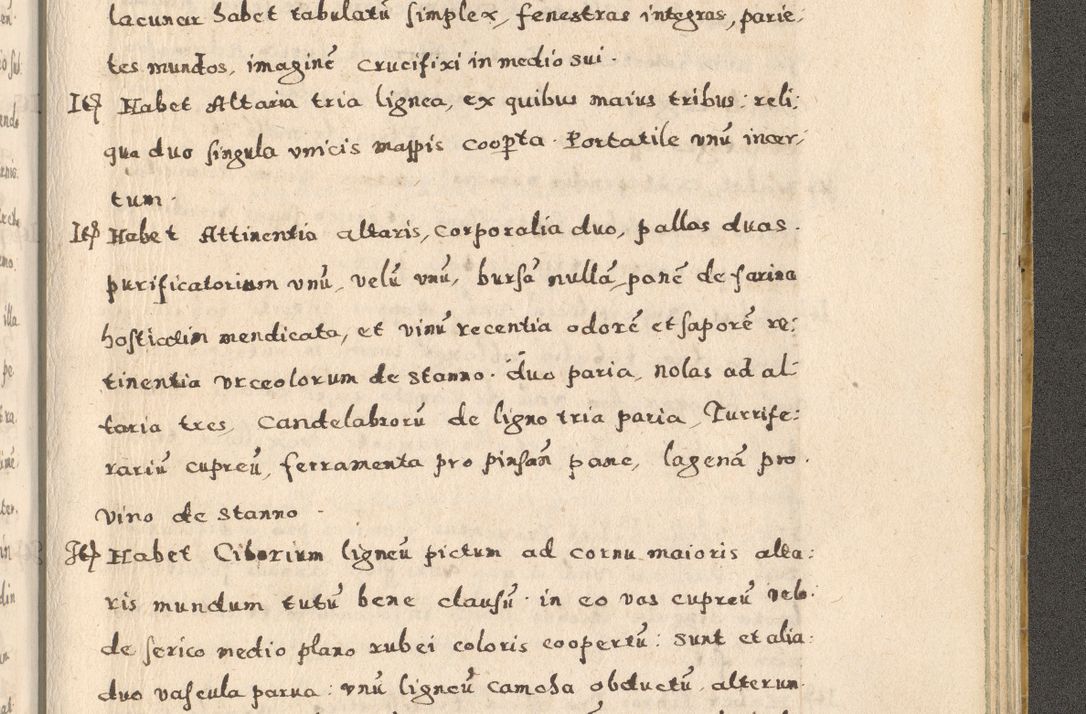 lacunar habet tabulatū simplex, fenestras integras, parie:
tes mundos, imaginē crucifixi in medio sui.
Itē Habet Altaria tria lignea, ex quibus maius tribus: reli:
qua duo singula vnicis mappis coopta. Portatile vnū incer:
tum.
Itē Habet Attinentia altaris, corporalia duo, pallas duas.
purificatorium vnū, velū vnū, bursā nullā, panē de farina
hostialim mendicata, et vinū recentia odorē et saporē re:
tinentia vrceolorum de stanno. duo paria, nolas ad al-
taria tres, candelabrorū de ligno tria paria, Turrife:
rariū cupreū, ferramenta pro pinsan̄ pane, lagenā pro.
vino de stanno.
Itē Habet Ciborium ligneū pictum ad cornu maioris alta:
ris mundum tutū bene clausū. in eo vas cupreū velo.
de serico medio plano rubei coloris coopertū: sunt et alia:
duo vascula parua: vnū ligneū camcha obductū, alterum